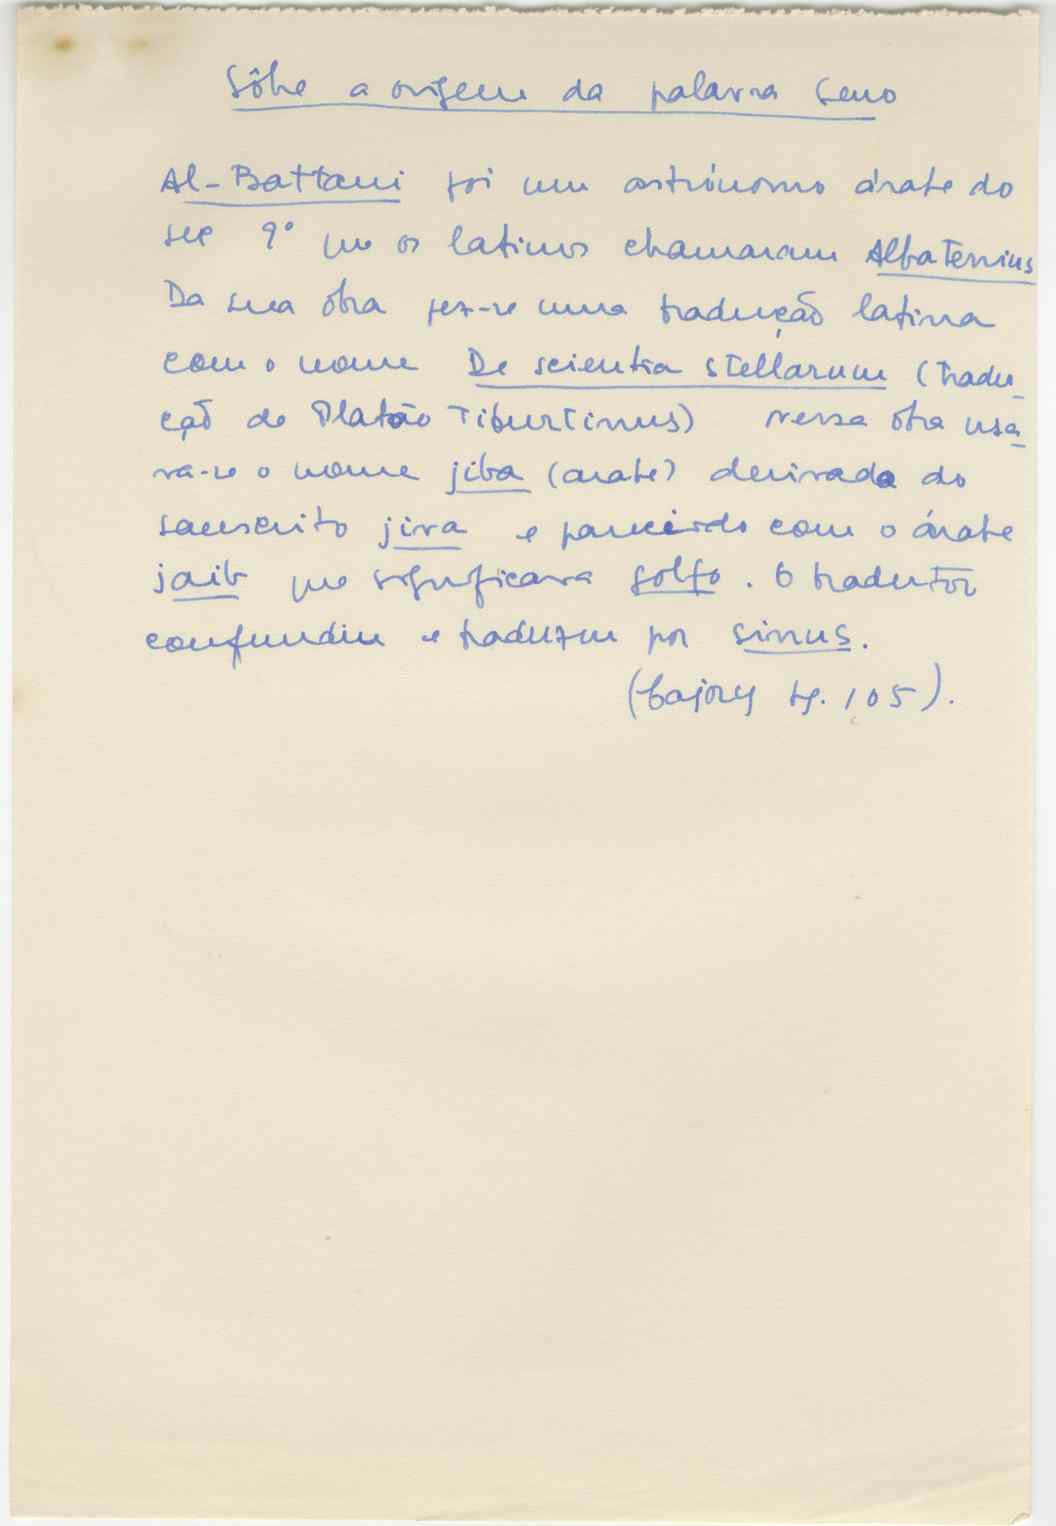 Sôbre a origem da palavra seno
Al-Battani foi um astrónomo árabe do
sec 9º que os latinos chamaram Albatenius
Da sua obra fez-se uma tradução latina
com o nome De scientia stellarum (tradu-
ção de Platão Tiburtinus) nessa obra usa-
va-se o nome jiba (arabe) derivado do
sanscrito jiva e parecido com o árabe
jaib que significava golfo. O tradutor
confundiu e traduziu por sinus.
(Cajory pg. 105).